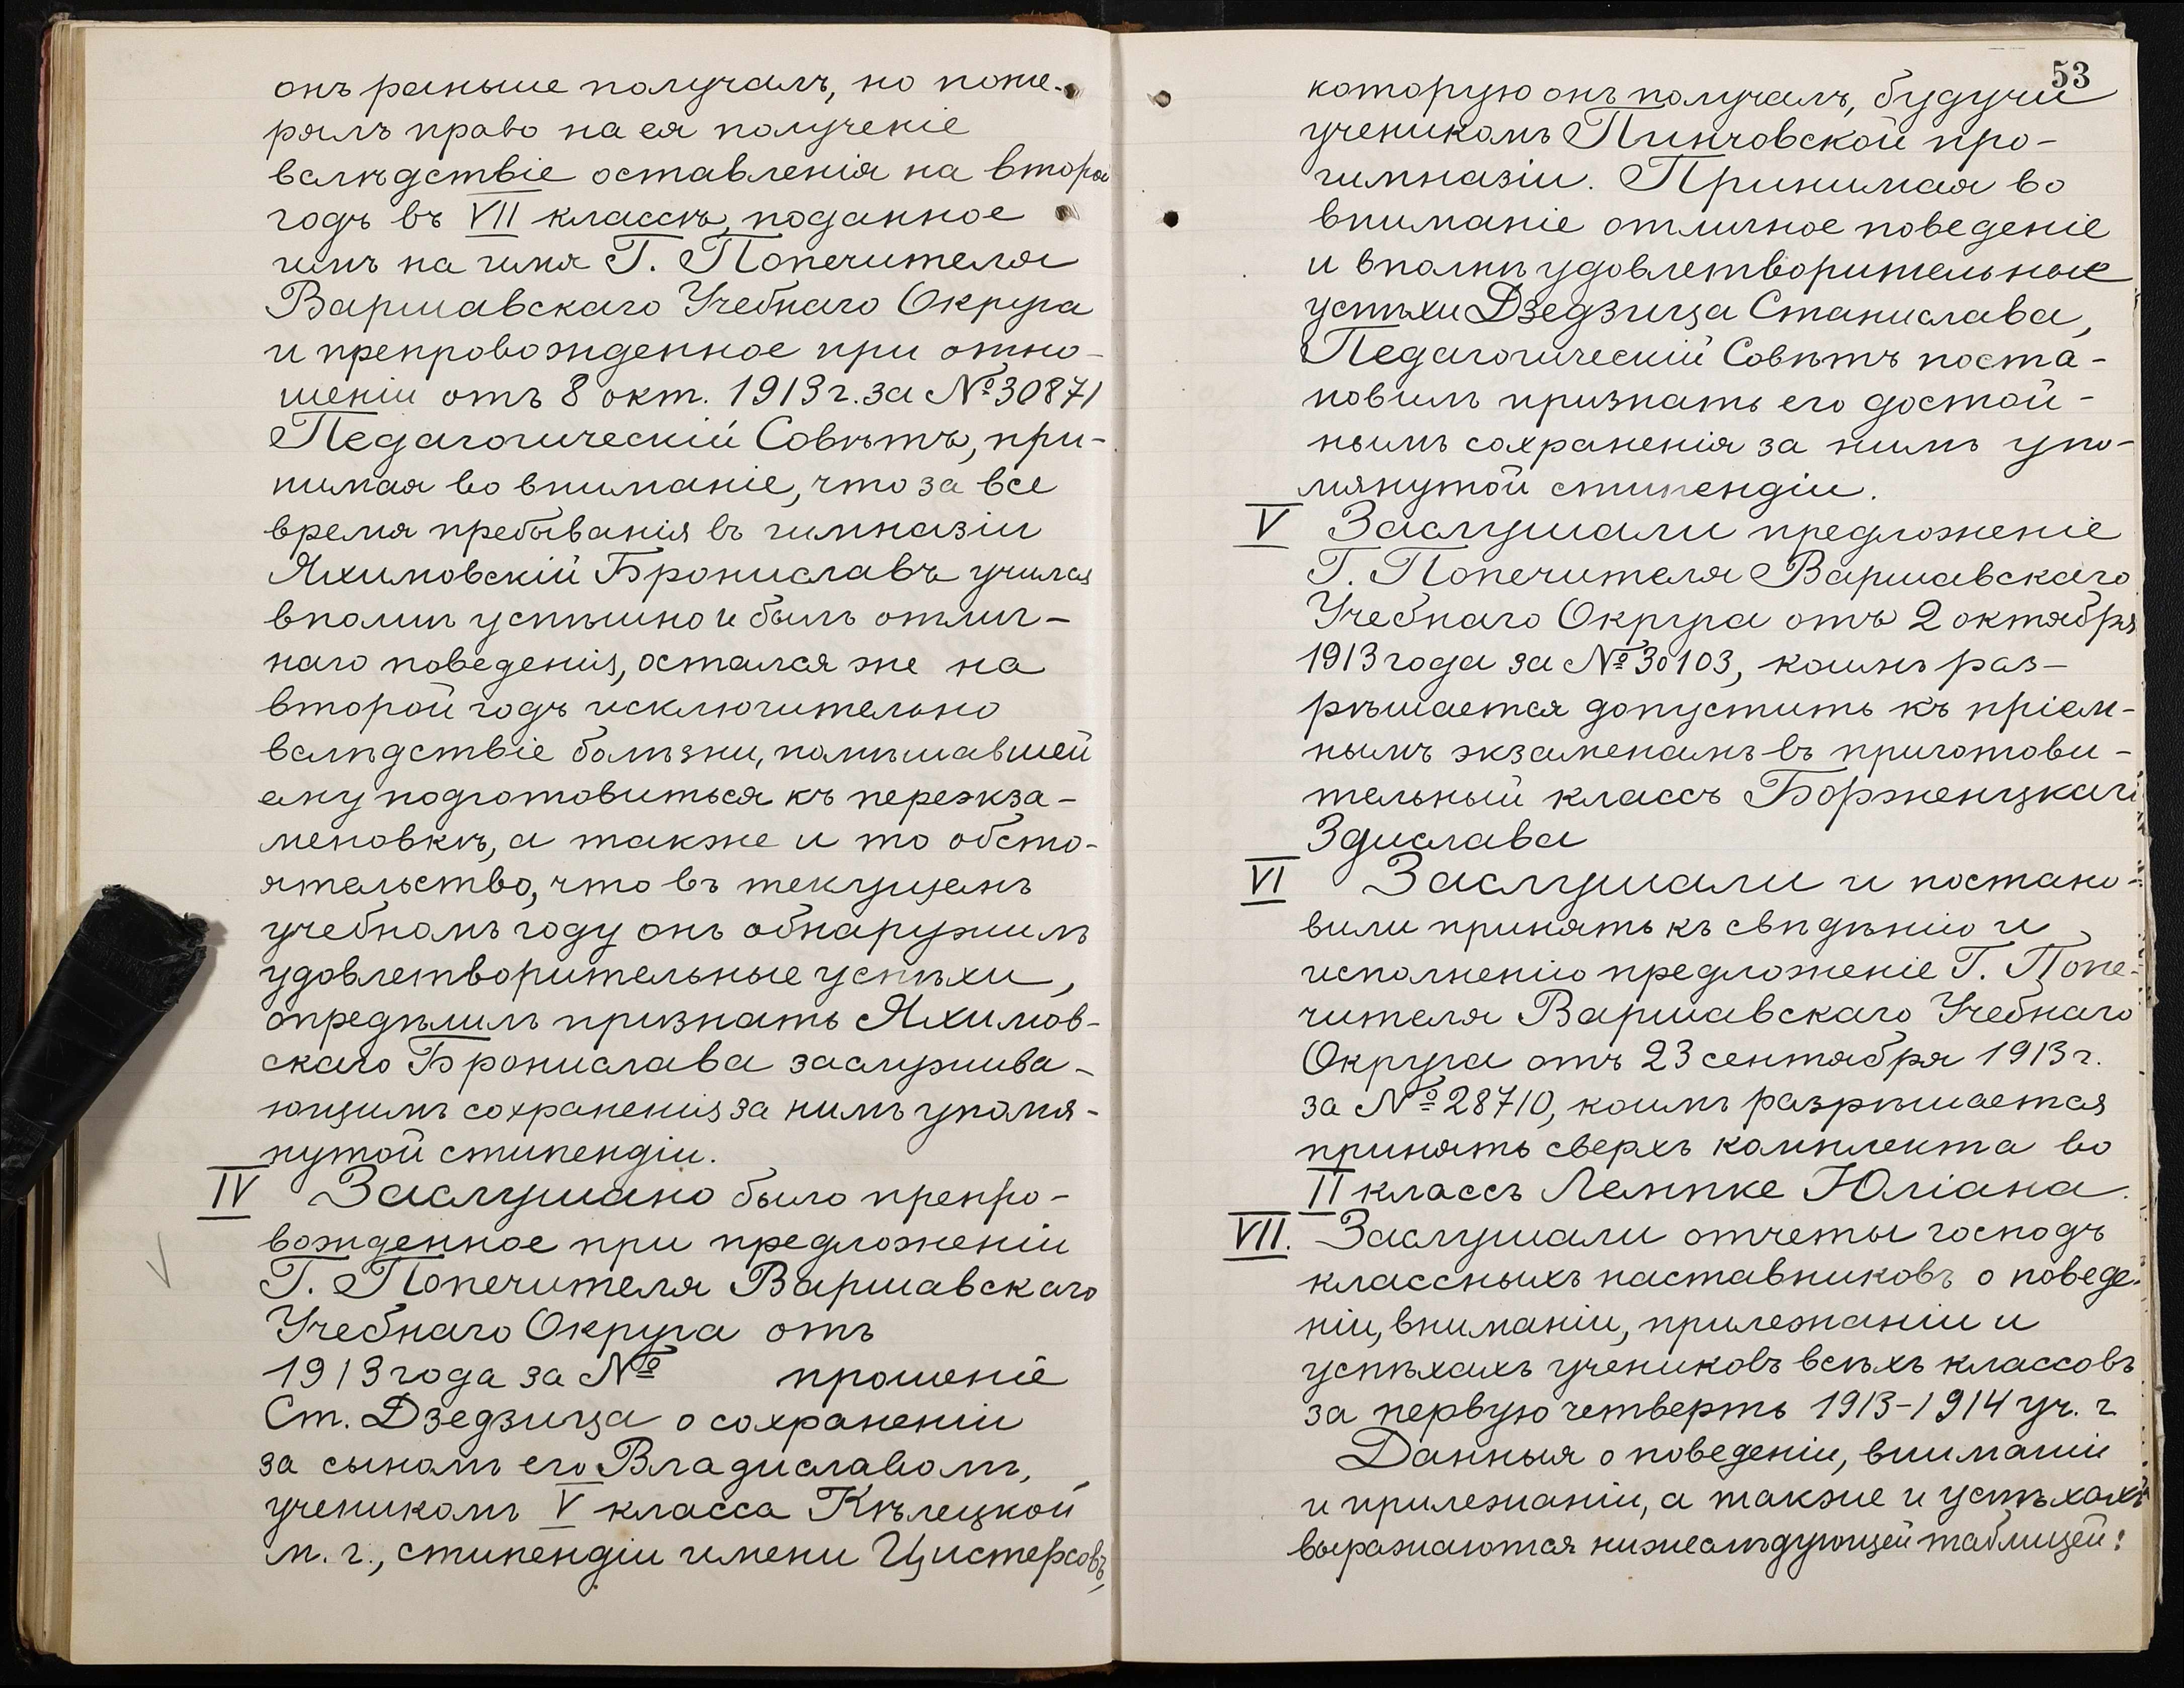 онъ раньше получалъ, но поте-
рялъ право на ея полученіе
вслѣдствіе оставленія на второй
годъ въ VII классѣ, поданное
имъ на имя Г. Попечителя
Варшавскаго Учебнаго Округа
и препровожденное при отно-
шеніи отъ 8 окт. 1913 г. за № 30871
Педагогическій Совѣтъ, при-
нимая во вниманіе, что за все
время пребыванія въ гимназіи
Яхимовскій Брониславъ учился
вполнѣ успѣшно и былъ отлич-
наго поведенія, остался же на
второй годъ исключительно
вслѣдствіе болѣзни, помѣшавшей
ему подготовиться къ переэкза-
меновкѣ, а также и то обсто-
ятельство, что въ текущемъ
учебномъ году онъ обнаружилъ
удовлетворительные успѣхи,
опредѣлилъ признать Яхимов-
скаго Бронислава заслужива-
ющимъ сохраненія за нимъ упомя-
нутой стипендіи.
IV Заслушано было препро-
вожденное при предложеніи
Г. Попечителя Варшавскаго
Учебнаго Округа отъ
1913 года за № прошеніе
Ст. Дзедзица о сохраненіи
за сыномъ его Владиславомъ,
ученикомъ V класса Кѣлецкой
м. г., стипендіи имени Цистерсовъ,
53
которую онъ получалъ, будучи
ученикомъ Пинчовской про-
гимназіи. Принимая во
вниманіе отличное поведеніе
и вполнѣ удовлетворительные
успѣхи Дзедзица Станислава,
Педагогическій Совѣтъ поста-
новилъ признать его достой-
нымъ сохраненія за нимъ упо-
мянутой стипендіи.
V Заслушали предложеніе
Г. Попечителя Варшавскаго
Учебнаго Округа отъ 2 октября
1913 года за № 30103, коимъ раз-
рѣшается допустить къ пріем-
нымъ экзаменамъ въ приготови-
тельный классъ Борженцкаго
Здислава
VI Заслушали и постано-
вили принять къ свѣдѣнію и
исполненію предложеніе Г. Попе-
чителя Варшавскаго Учебнаго
Округа отъ 23 сентября 1913 г.
за № 28710, коимъ разрѣшается
принять сверхъ комплекта во
II классъ Лемпке Юліана.
VII. Заслушали отчеты господъ
классныхъ наставниковъ о поведе-
ніи, вниманіи, прилежаніи и
успѣхахъ учениковъ всѣхъ классовъ
за первую четверть 1913-1914 уч. г.
Данныя о поведеніи, вниманіи
и прилежаніи, а также и успѣхахъ
выражаются нижеслѣдующей таблицей: